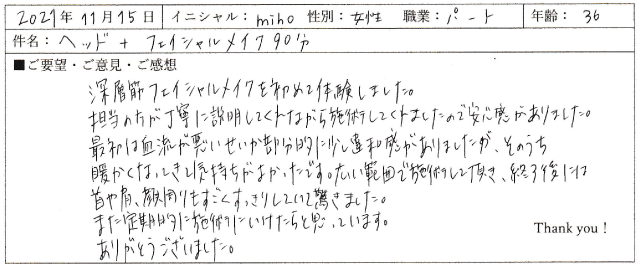 2021年11月15日 イニシャル：miho 性別：女性 職業：パート 年齢：36
件名：ヘッド＋フェイシャルメイク90分
■ご要望・ご意見・ご感想
深層筋フェイシャルメイクを初めて体験しました。
担当の方が丁寧に説明してくれながら施術してくれましたので安心感がありました。
最初は血流が悪いせいか部分的に少し違和感がありましたが、そのうち
暖かくなってきて気持ちがよかったです。広い範囲で施術して頂き、終了後には
首や肩、顔周りもすごくすっきりしていて驚きました。
また定期的に施術にいけたらと思っています。
ありがとうございました。
Thank you！